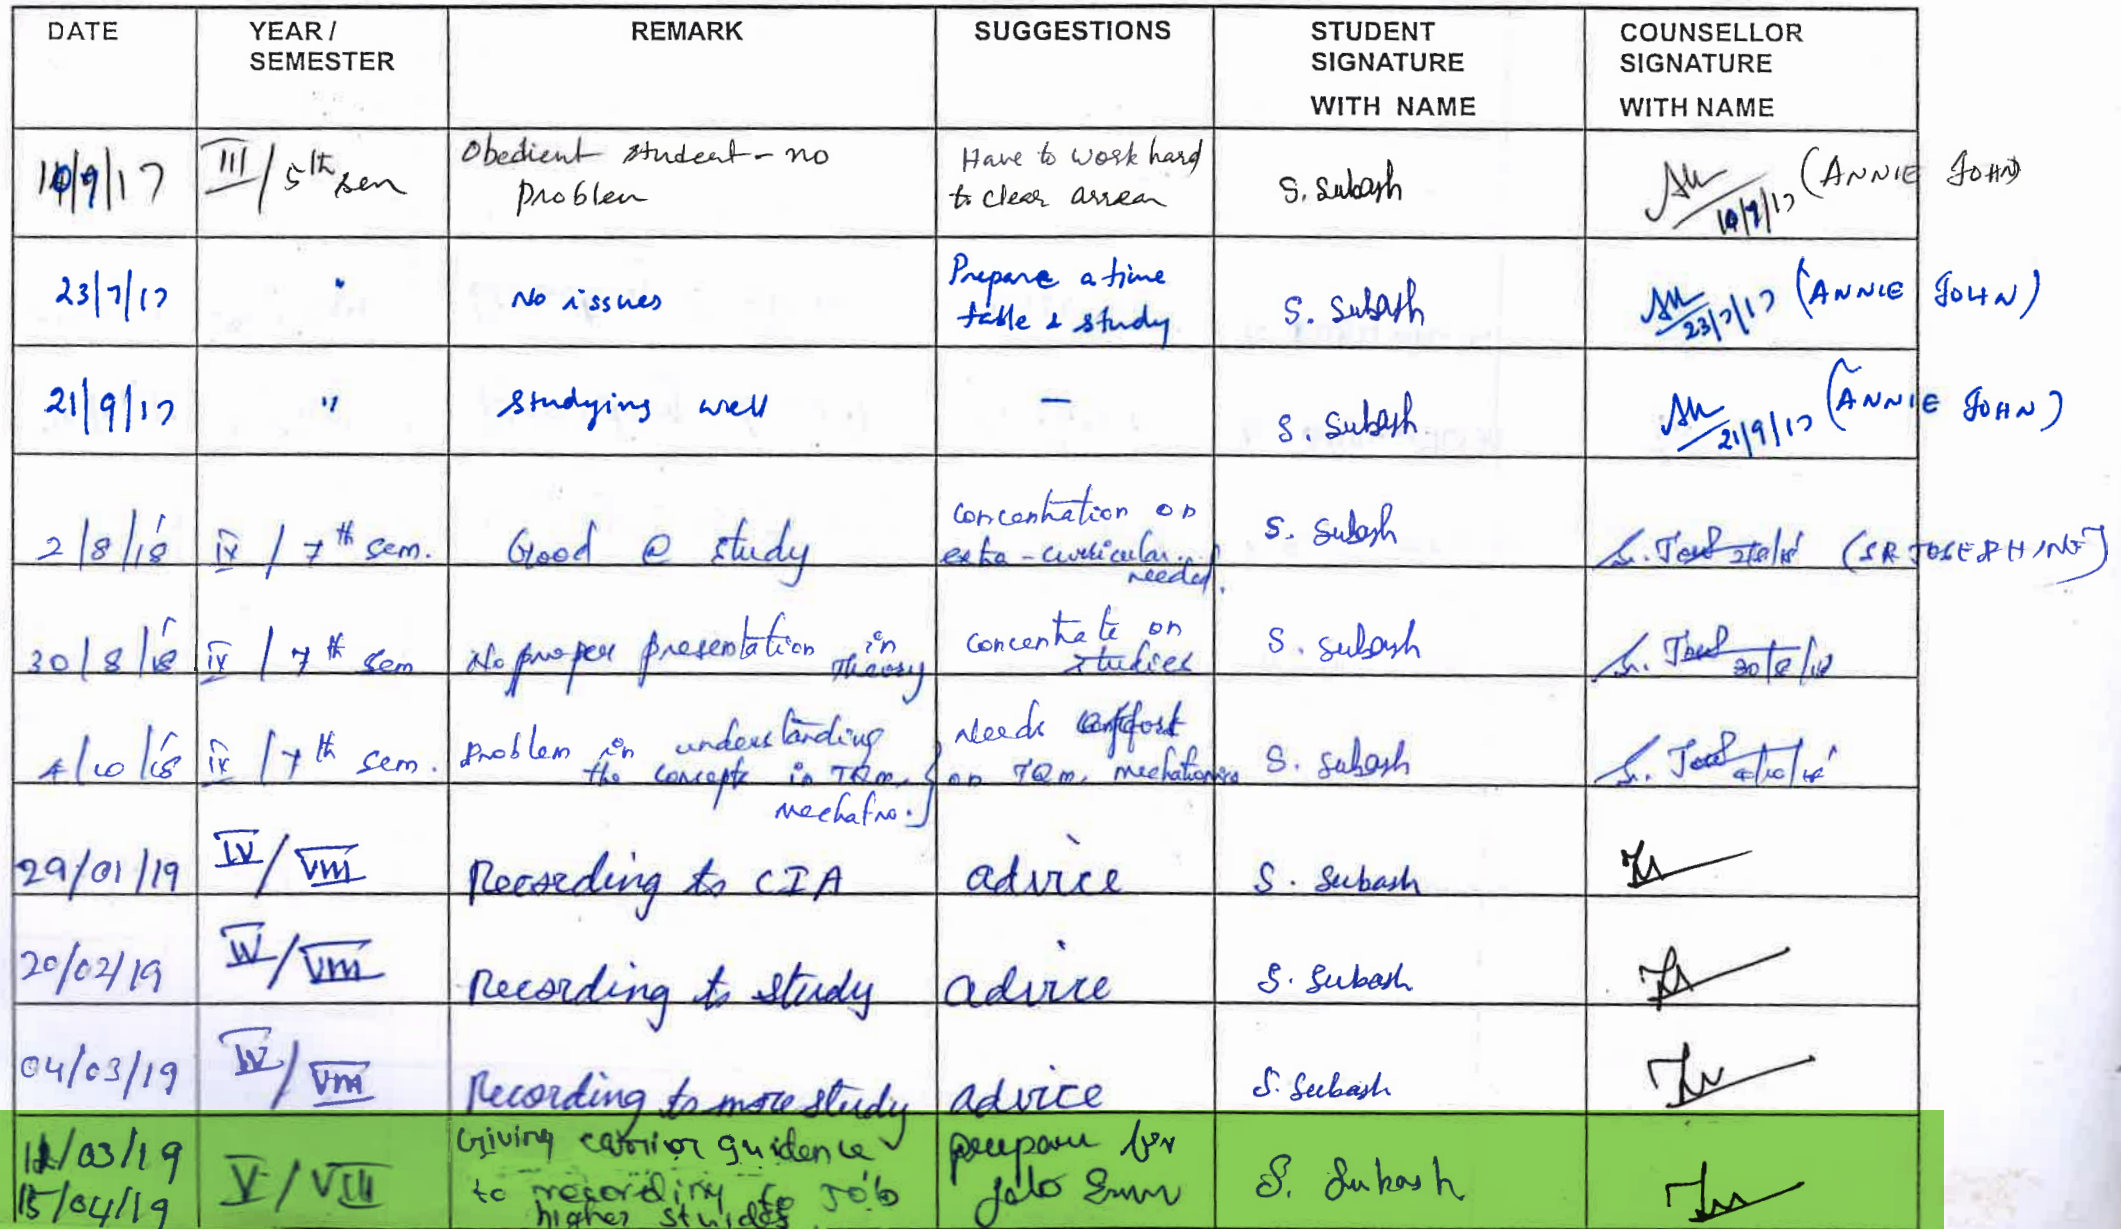 DATE YEAR / SEMESTER REMARK SUGGESTIONS STUDENT SIGNATURE WITH NAME COUNSELLOR SIGNATURE WITH NAME
10/9/17 III / 5th sem Obedient student - no problem Have to work hard to clear arrear S. Subash 10/9/17 (ANNIE JOHN)
23/7/17 " No issues Prepare a time table & study S. Subash 23/7/17 (ANNIE JOHN)
21/9/17 " studying well — S. Subash 21/9/17 (ANNIE JOHN)
2/8/18 IV / 7th sem. Good @ study concentration on extra-curricular needed. S. Subash 2/8/18 (SR JOSEPHINE)
30/8/18 IV / 7th sem No proper presentation in theory concentrate on studies S. Subash 30/8/18
4/10/18 IV / 7th sem. problem in understanding the concepts in TQM, mechatro. Needs on TQM, mechatronics S. Subash 4/10/18
29/01/19 IV / VIII Recording to CIA advice S. Subash
20/02/19 IV / VIII Recording to study advice S. Subash
04/03/19 IV / VIII Recording to more study advice S. Subash
/03/19 15/04/19 V / VIII Giving carrior guidence to recording to job higher studies prepare for S. Subash